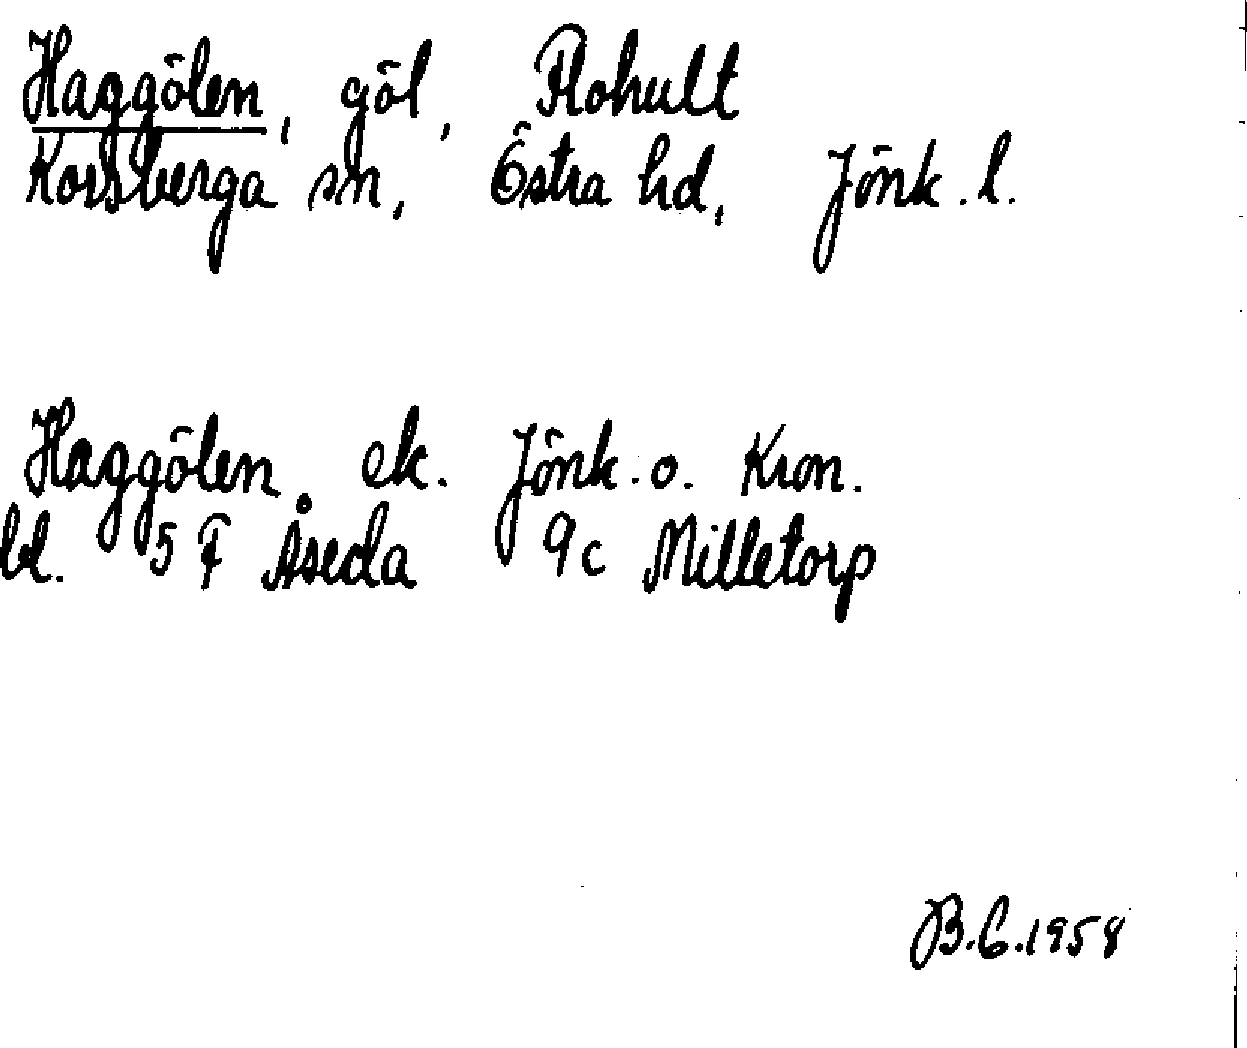 Haggölen, göl, Flohult
Korsberga sn, Östra hd, Jönk. l.
Haggölen ek. Jönk. o. Kron.
bl. 5 F Åseda 9c Milletorp
B.G.1958